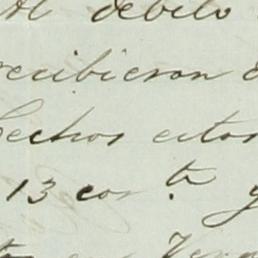 debito
recibieron
hechos estos
13 cor.te y